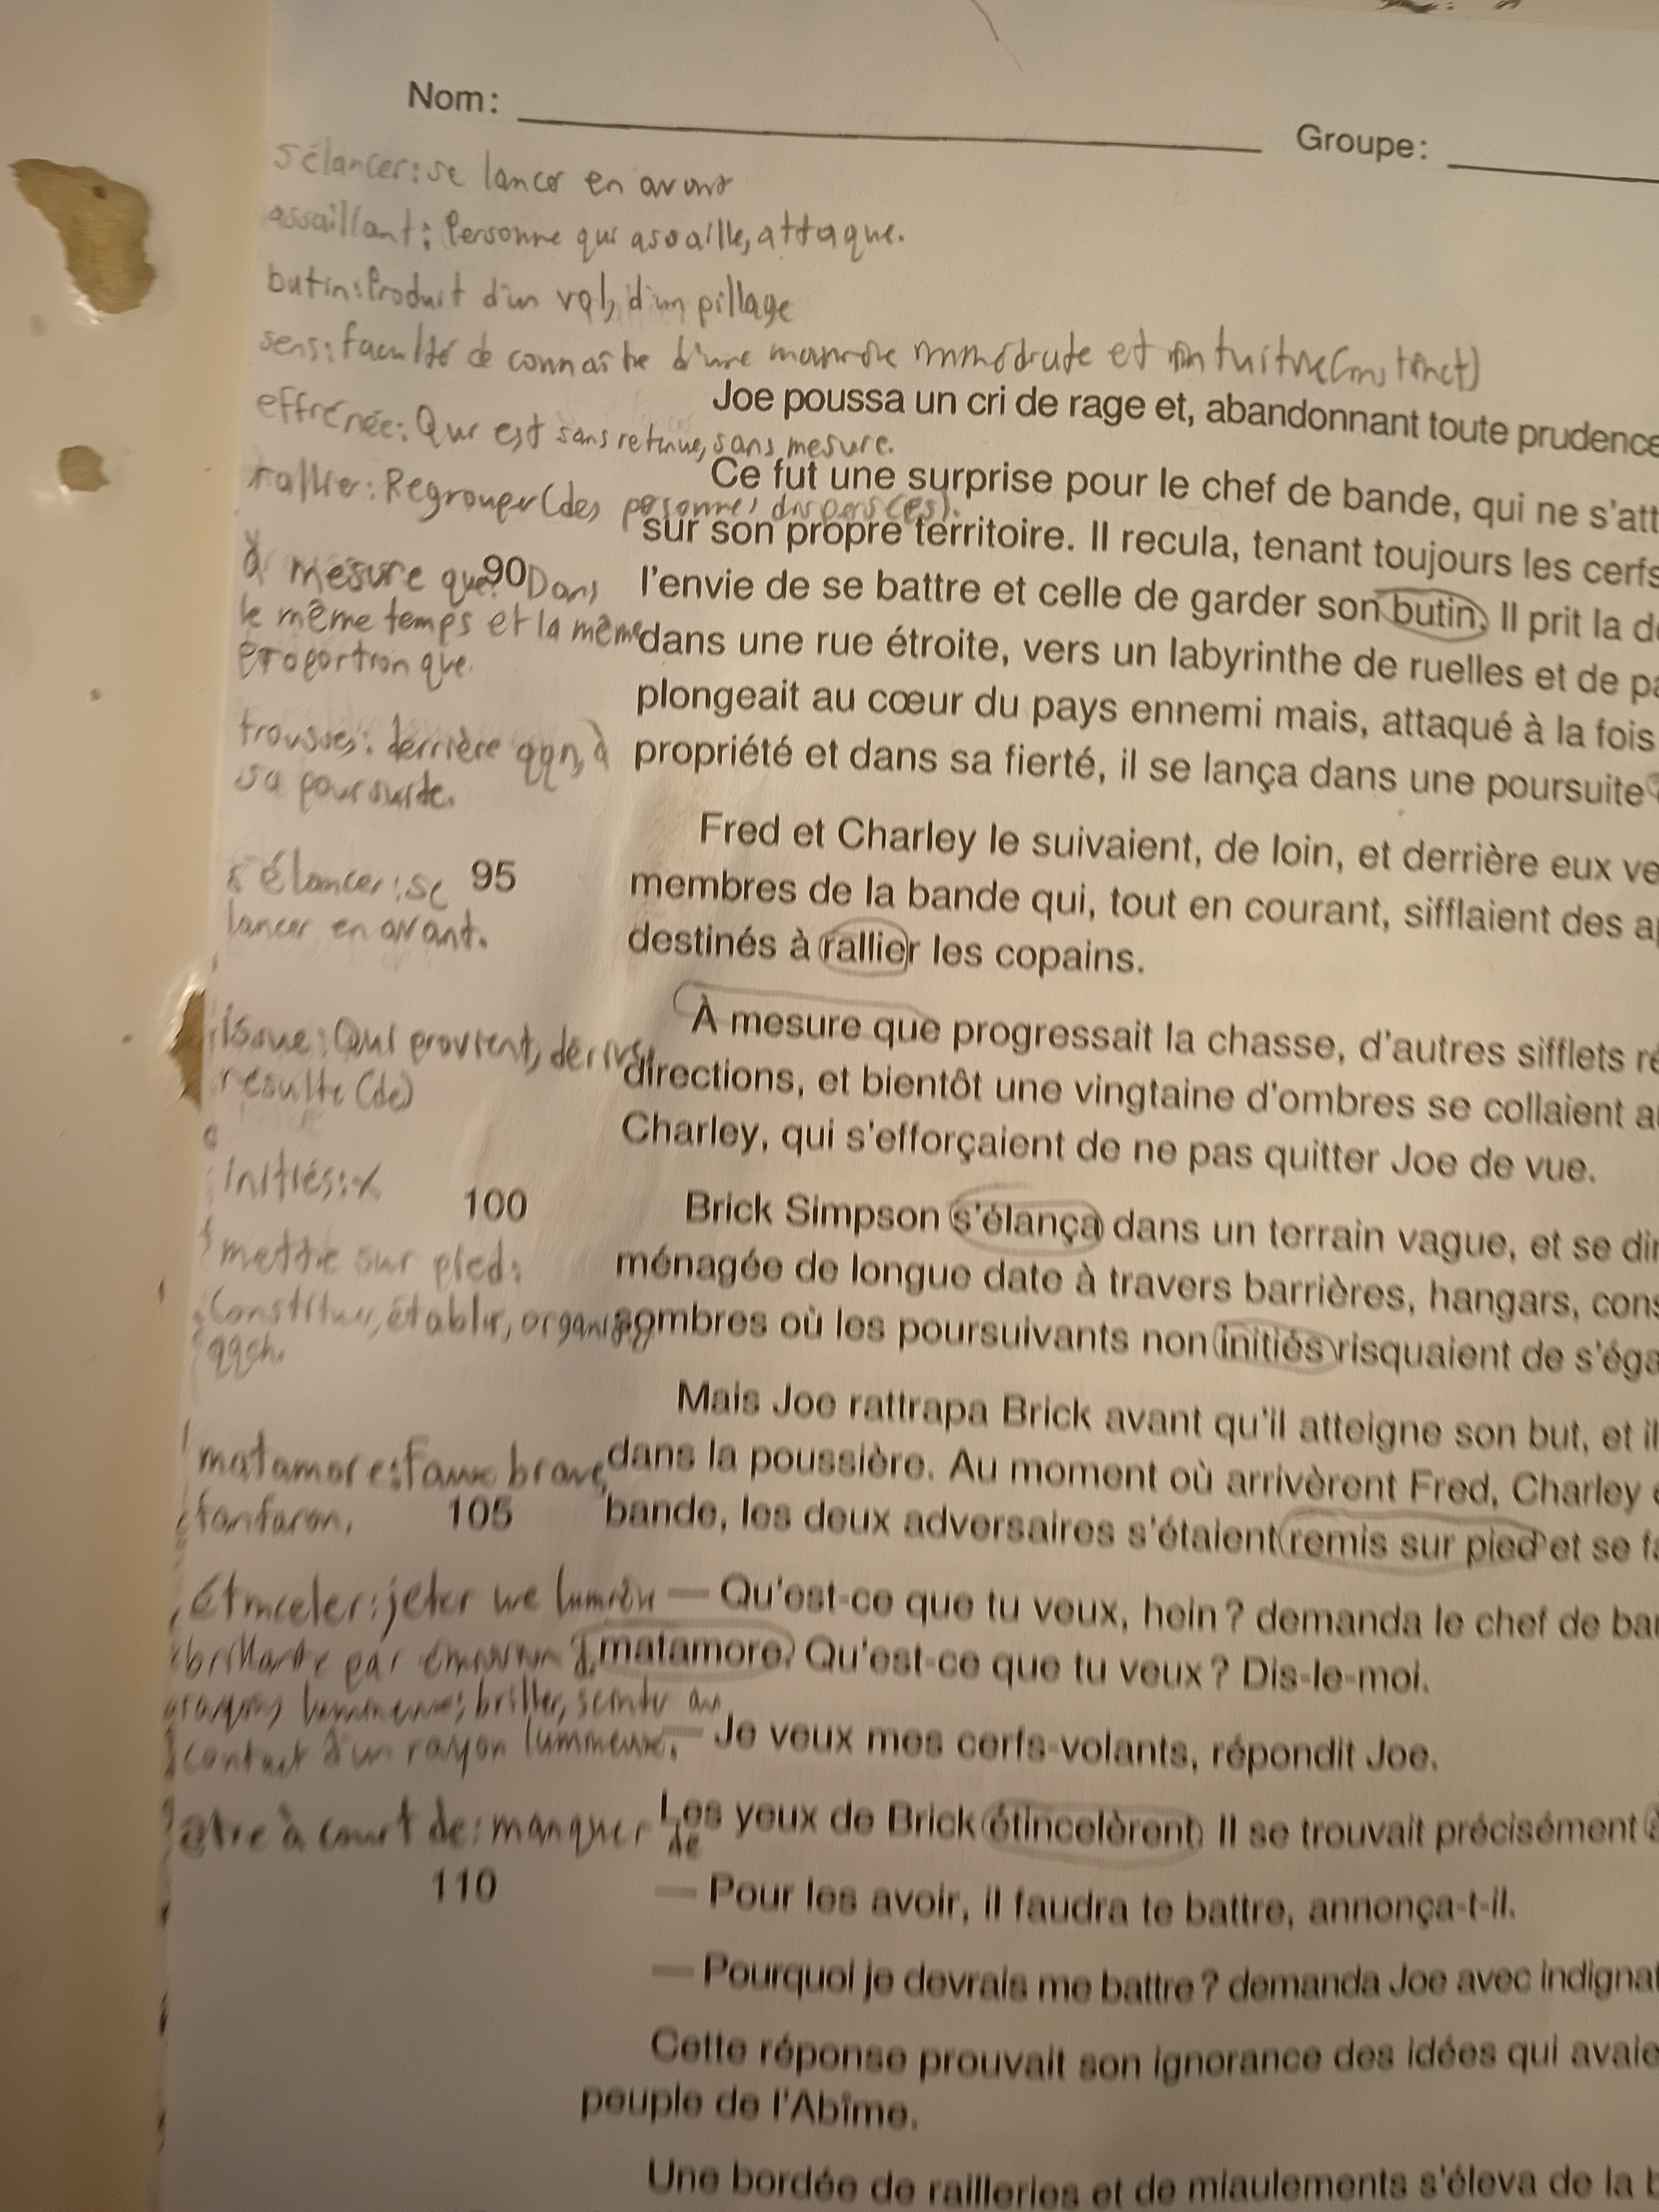 Nom:
Groupe:
s'élancer: se lancer en avant
assaillant: Personne qui assaille, attaque.
butin: Produit d'un vol, d'un pillage
sens: faculté de connaître d'une manière immédiate et intuitive (instinct)
Joe poussa un cri de rage et, abandonnant toute prudence
effrénée: Qui est sans retenue, sans mesure.
Ce fut une surprise pour le chef de bande, qui ne s'att
rallier: Regrouper (des personnes dispersées).
sur son propre territoire. Il recula, tenant toujours les cerfs
à mesure que: Dans
90
l'envie de se battre et celle de garder son butin. Il prit la d
le même temps et la même
dans une rue étroite, vers un labyrinthe de ruelles et de pa
proportion que.
plongeait au cœur du pays ennemi mais, attaqué à la fois
trousses: derrière qqn, à
propriété et dans sa fierté, il se lança dans une poursuite
sa poursuite.
Fred et Charley le suivaient, de loin, et derrière eux ve
s'élancer: se
95
membres de la bande qui, tout en courant, sifflaient des a
lancer en avant.
destinés à rallier les copains.
À mesure que progressait la chasse, d'autres sifflets ré
issue: Qui provient, dérive,
directions, et bientôt une vingtaine d'ombres se collaient a
résulte (de)
Charley, qui s'efforçaient de ne pas quitter Joe de vue.
initiés: x
100
Brick Simpson s'élança dans un terrain vague, et se di
mettre sur pied:
ménagée de longue date à travers barrières, hangars, cons
Constituer, établir, organiser
sombres où les poursuivants non initiés risquaient de s'éga
qqch.
Mais Joe rattrapa Brick avant qu'il atteigne son but, et il
matamore: faux brave,
dans la poussière. Au moment où arrivèrent Fred, Charley
fanfaron.
105
bande, les deux adversaires s'étaient remis sur pied et se f
Étinceler: jeter une lumière
— Qu'est-ce que tu veux, hein ? demanda le chef de ba
brillante par émission
matamore. Qu'est-ce que tu veux ? Dis-le-moi.
briller, au
contact d'un rayon lumineux.
— Je veux mes cerfs-volants, répondit Joe.
être à court de: manquer de
Les yeux de Brick étincelèrent. Il se trouvait précisément
110
— Pour les avoir, il faudra te battre, annonça-t-il.
— Pourquoi je devrais me battre ? demanda Joe avec indigna
Cette réponse prouvait son ignorance des idées qui avaie
peuple de l'Abîme.
Une bordée de railleries et de miaulements s'éleva de la